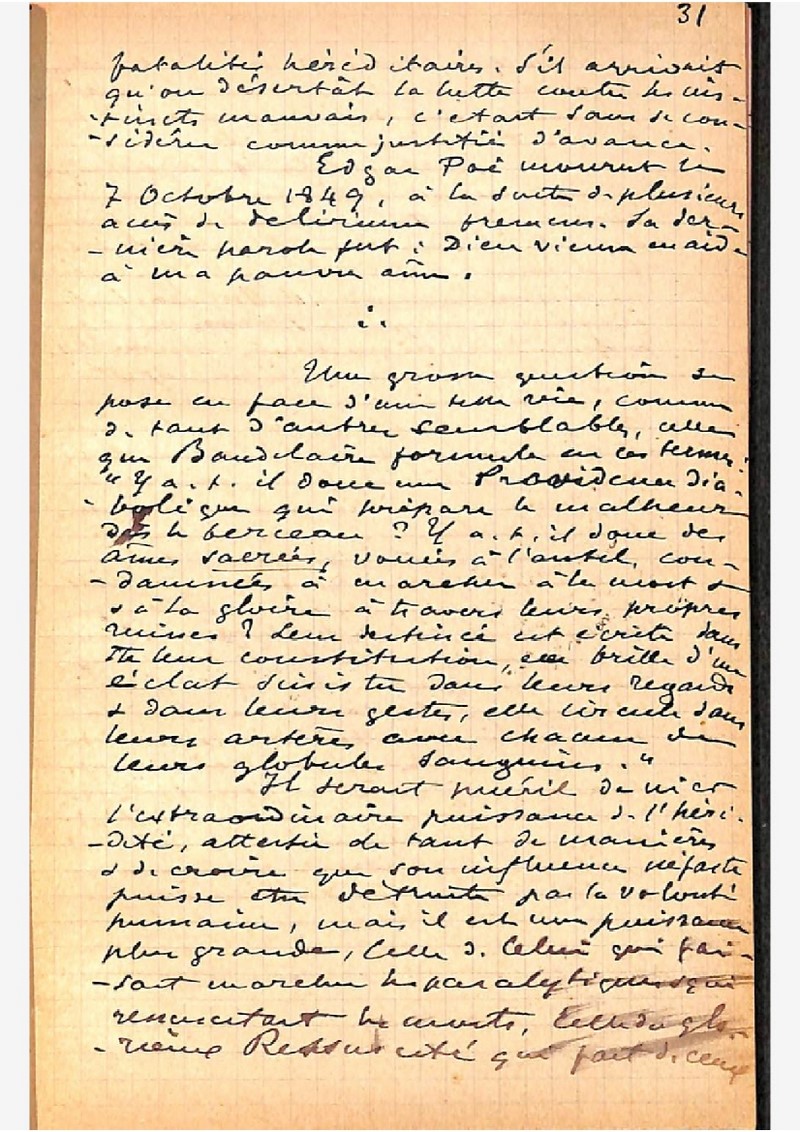 31
fatalités héréditaires. S'il arrivait
qu'on désertât la lutte contre les ins-
-tincts mauvais, c'était sans se con-
-sidérer comme justifié d'avance.
Edgar Poë mourut le
7 Octobre 1849, à la suite de plusieurs
accès de delirium tremens. Sa der-
-nière parole fut : Dieu vienne en aide
à ma pauvre âme.
Une grosse question se
pose en face d'une telle vie, comme
de tant d'autres semblables, celle
que Baudelaire formule en ces termes :
"Y a.t.il donc une Providence dia-
-bolique qui prépare le malheur
dès le berceau ? Y a.t.il donc des
âmes sacrées, vouées à l'autel, con-
-damnées à marcher à la mort &
à la gloire à travers leurs propres
ruines ? Leur destinée est écrite dans
tte leur constitution, elle brille d'un
éclat sinistre dans leurs regards
& dans leurs gestes, elle circule dans
leurs artères avec chacun de
leurs globules sanguins."
Il serait puéril de nier
l'extraordinaire puissance de l'héré-
-dité, attestée de tant de manières
& de croire que son influence néfaste
puisse être détruite par la volonté
humaine, mais il est une puissance
plus grande, celle de Celui qui fai-
-sait marcher les paralytiques, qui
ressuscitait les morts, celle du glo-
-rieux Ressuscité qui fait de ceux